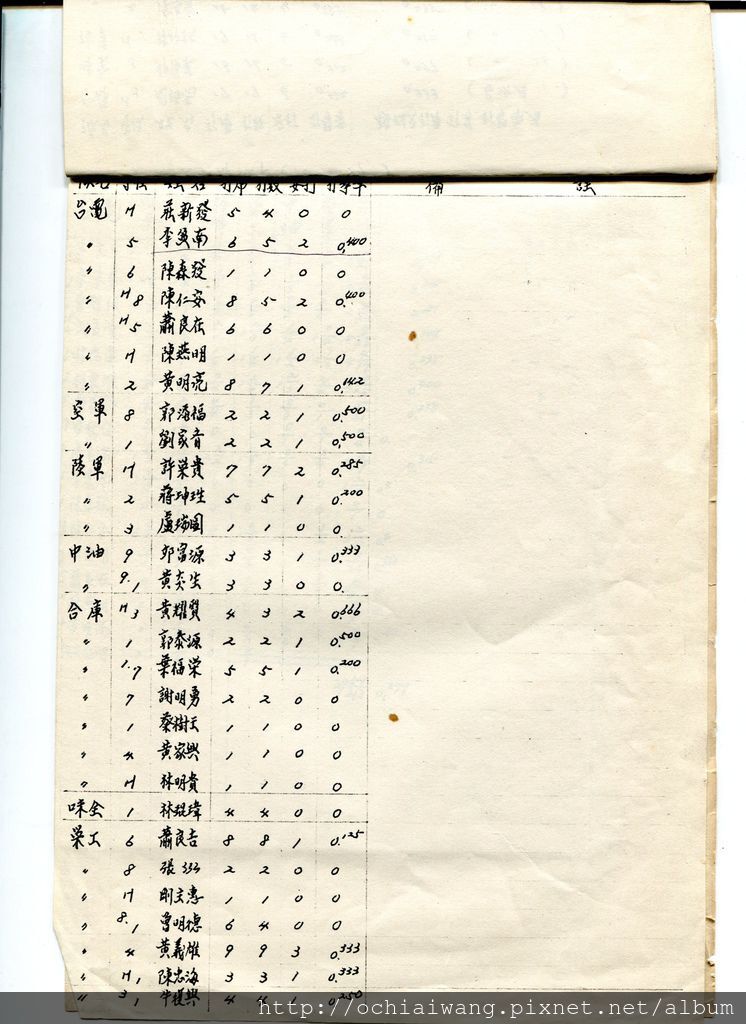 隊名 守位 姓名 打席 打數 安打 打擊率 備 註
台電 H 莊新發 5 4 0 0
〃 5 李 南 6 5 2 0.400
〃 6 陳森發 1 1 0 0
〃 H8 陳仁安 8 5 2 0.400
〃 H5 蕭良在 6 6 0 0
〃 H 陳燕明 1 1 0 0
〃 2 黃明亮 8 7 1 0.142
空軍 8 郭海福 2 2 1 0.500
〃 1 劉家育 2 2 1 0.500
陸軍 H 許榮貴 7 7 2 0.285
〃 2 蔣坤珄 5 5 1 0.200
〃 3 盧瑞圖 1 1 0 0.
中油 9 邱富源 3 3 1 0.333
〃 9.1 黃炎生 3 3 0 0.
合庫 H3 黃耀賢 4 3 2 0.666
〃 1 郭泰源 2 2 1 0.500
〃 1.7 葉福榮 5 5 1 0.200
〃 7 謝明勇 2 2 0 0
〃 1 蔡樹 1 1 0 0
〃 4 黃家興 1 1 0 0
〃 H 林明貴 1 1 0 0
味全 1 林琨瑋 4 4 0 0
榮工 6 蕭良吉 8 8 1 0.125
〃 8 張 2 2 0 0
〃 H 惠 1 1 0 0
〃 8.1 魯明德 6 4 0 0
〃 4 黃義雄 9 9 3 0.333
〃 H1 陳忠海 3 3 1 0.333
〃 31 牛復興 4 4 1 0.250
http://ochiaiwang.pixnet.net/album